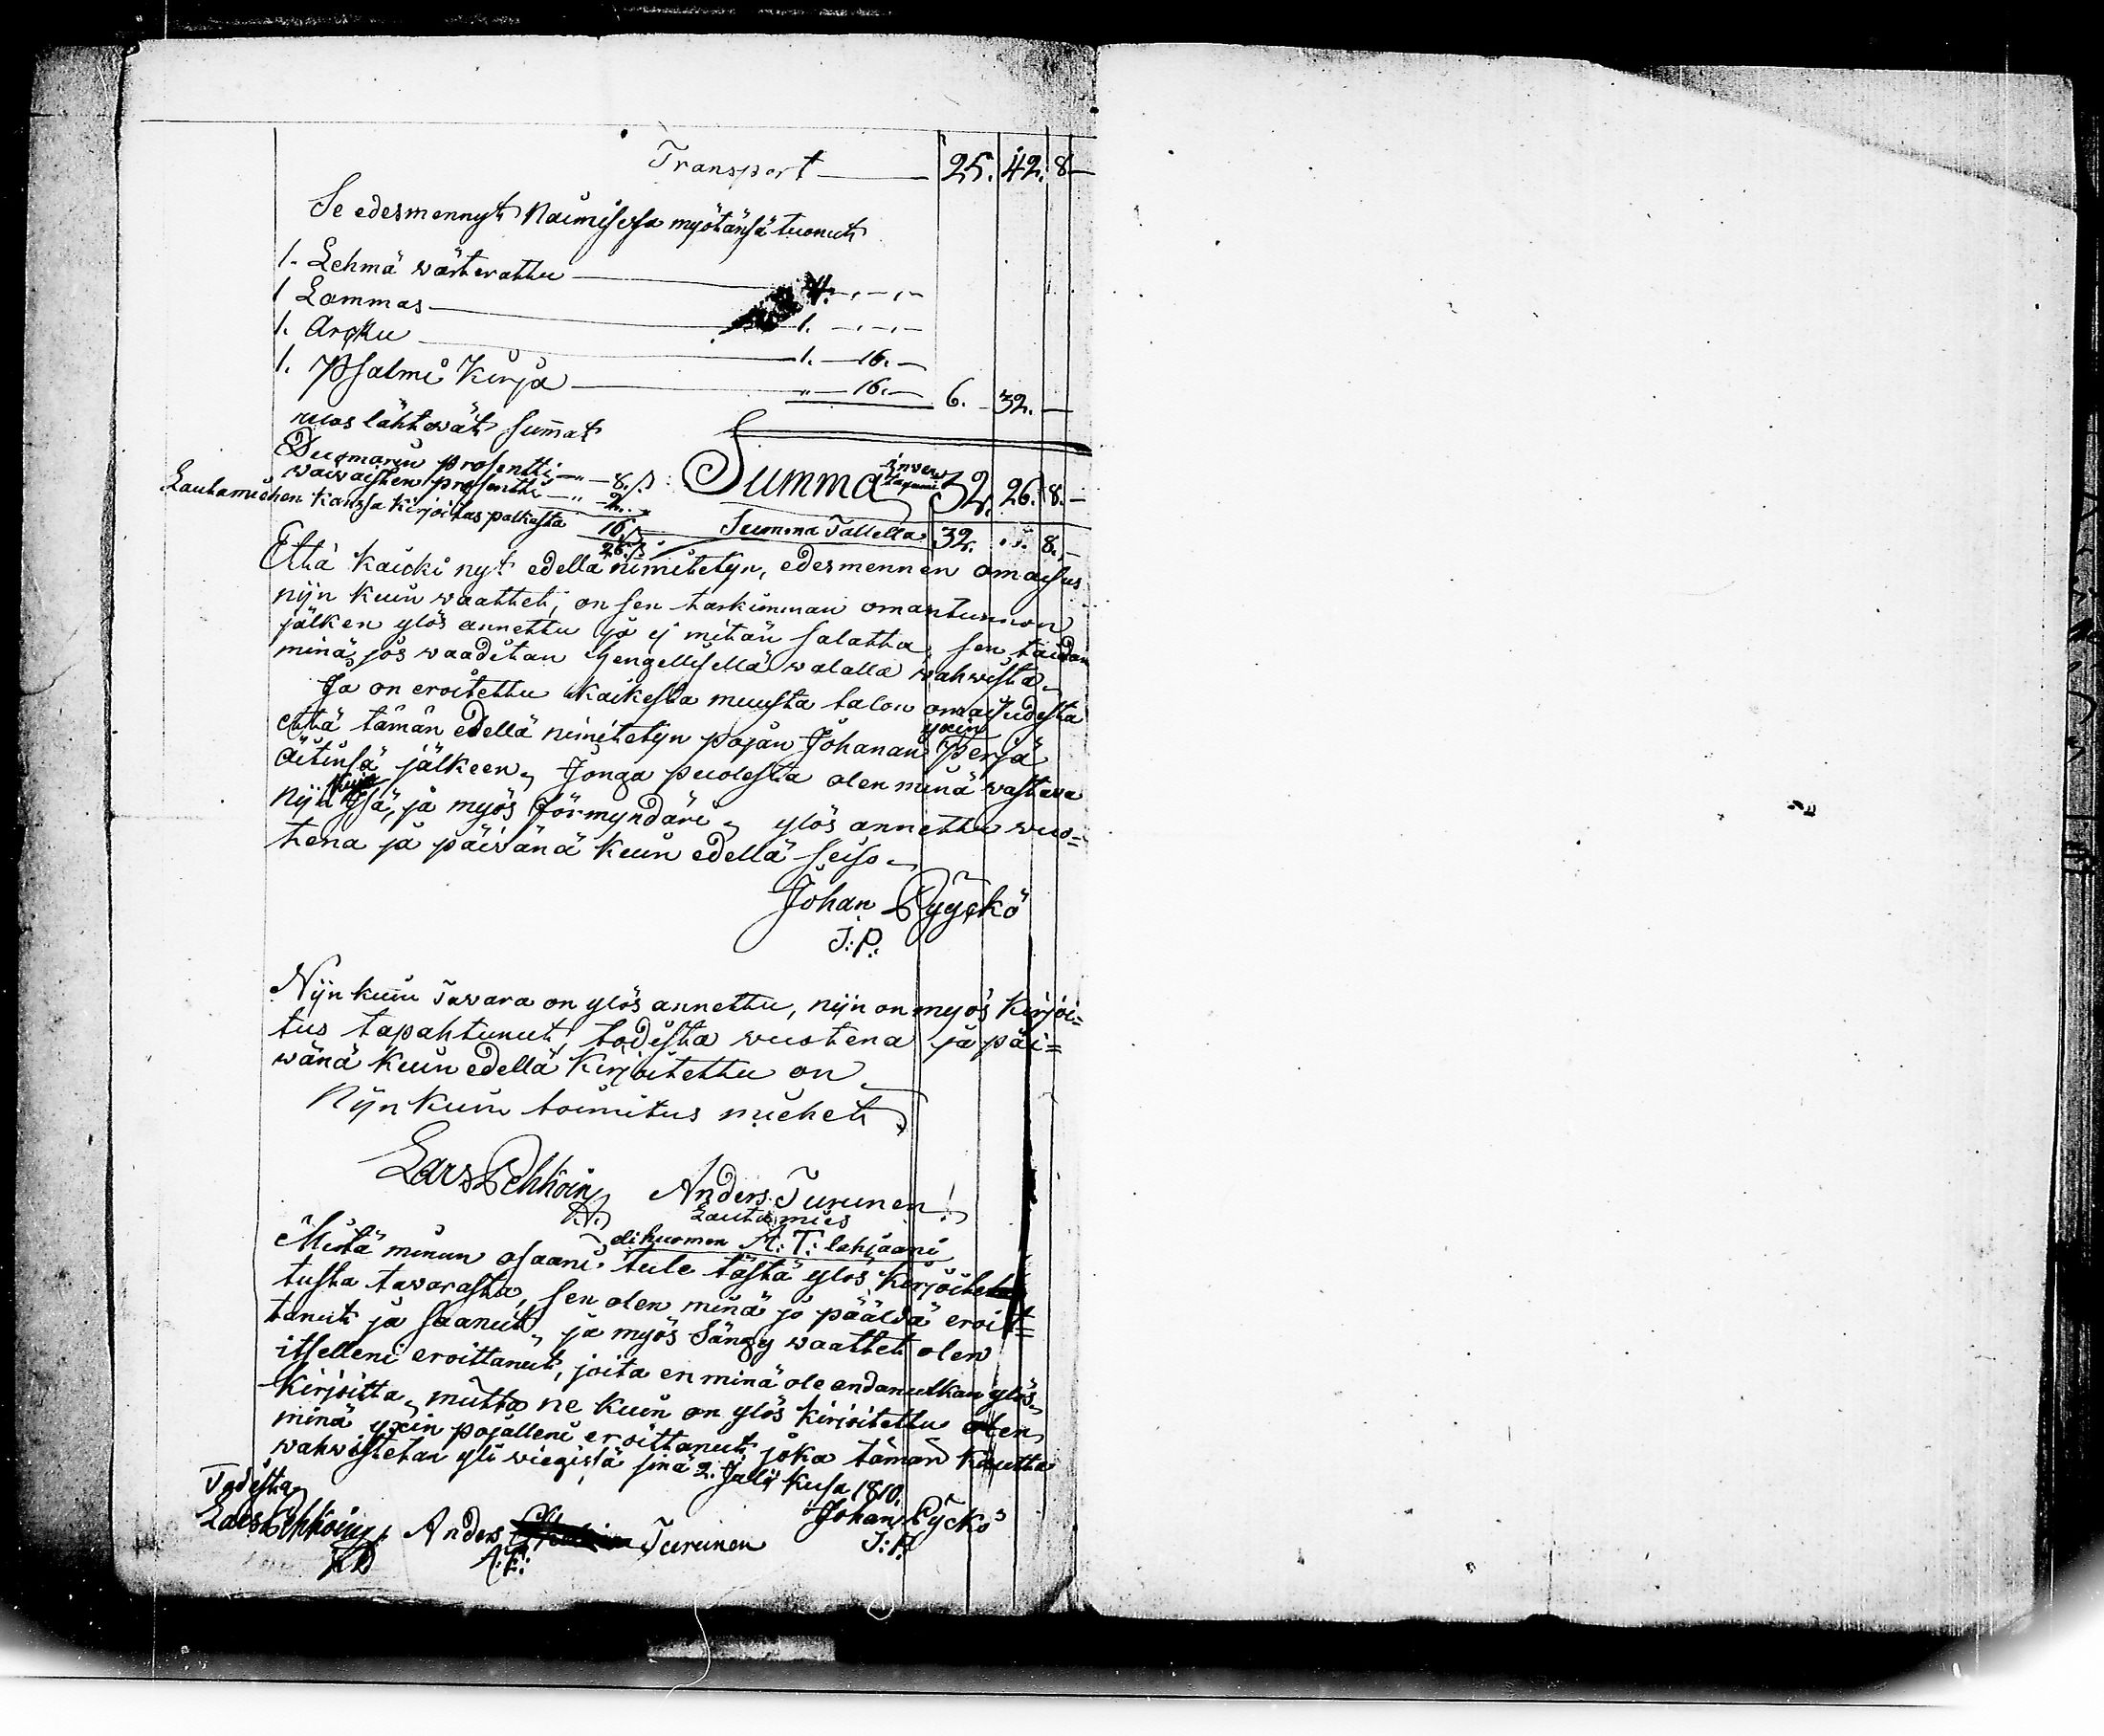 Transport — 25. 42. 8 —
Se edesmennyt Naimisesa myötänsä tuonut
1. Lehmä wärterattu — 4. „ — „ —
1 Lammas — 1. — „ — „ —
1. Arcku — 1. — 16. —
1. Psalmi Kirja — „ — 16. — 6. — 32. —
ulos lähtewät summat
Duomarin prosentti — „ — 8. ß:
waiwaisten prosentti — „ — 2. „
Summa inven
tagiumi 32. 26. 8. —
Lautamiehen kanssa kirjoitas palkasta 16 ß
26. ß. Summa Tallella 32. „. 8. —
Että kaicki nyt edellä nimitetyn, edesmennen omaisus
nijn kuin waattet, on sen tarkimman omantunnon
jälken ylös annettu ja ej mitän salattu, sen taidan
minä, jos waaditan hengellisellä walalla wahwista.
Ja on eroitettu kaikesta muusta talon omaisudesta
että tämän edellä nimitetyn pojan Johanan yxin Perjä
äitinsä jälkeen, Jonga puolesta olen minä wastava
nijn kuin Isä, ja myös förmyndäri, ylös annettu wuo=
tena ja päiwänä kuin edellä seiso.
Johan Pyyckö
J: P:
Nijn kuin Tawara on ylös annettu, nijn on myös Kirjoi=
tus tapahtunut, todista wuotena ja päi=
wänä kuin edellä Kirjoitettu on
Nijn kuin toimitus miehet
Lars Anders Turunen
Lautamies
elikuomen A: T: lahjaani
Mistä minun osaani tule tästä ylös Kirjoitetu
tusta tawarasta, sen olen minä jo pääldä eroit=
tanut ja saanut, ja myös Sängy waattet olen
itselleni eroittanut, joita en minä ole andanutkan ylös
Kirjoitta, mutta ne kuin on ylös kirjoitettu olen
minä yxin pojalleni eroittanut, joka tämän kautta
wahwistetan yli wiegistä sinä 2. Juli Kusa 1810.
Todista
Lars Anders Turunen Johan Pyckö
A: T: J: P.